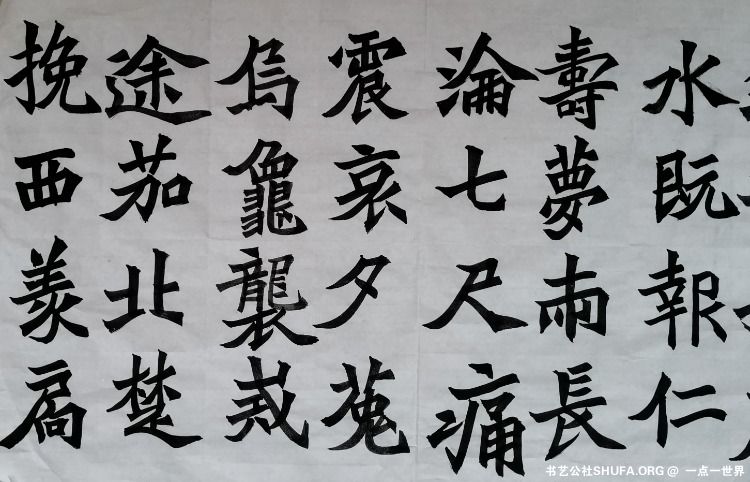 水既報仁
壽夢雨長
淪七尺痛
震哀夕菟
烏龕襲
途茄北楚
挽西羨扃
书艺公社SHUFA.ORG @ 一点一世界